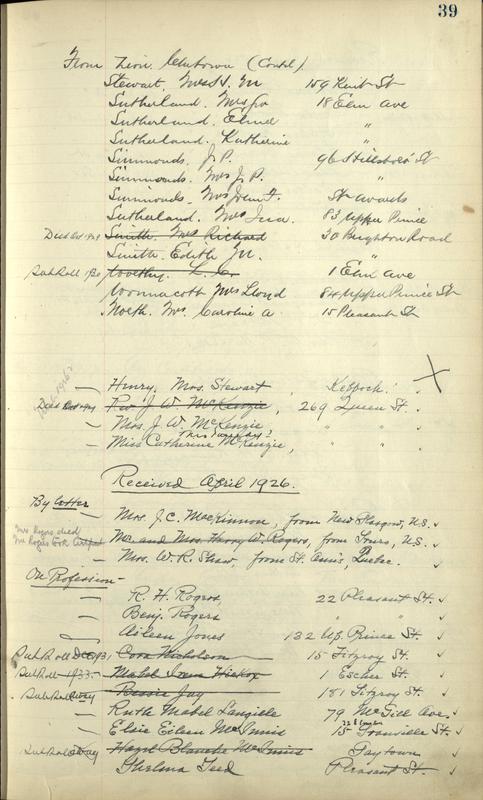 39
From Zion, Chtown (Contd.)
Stewart, Mrs. J. M 159 Kent St
Sutherland. Mrs Go 18 Elm ave
Sutherland. Elmer
Sutherland. Katherine "
Simmonds. J. P. 96 Hillsboro St
Simmonds. Mrs J. P. "
Simmonds. Mrs
Sutherland. Mrs Ina. 83 Upper Prince
Died Oct Smith. Mrs Richard 30 Brighton Road
Smith. Edith M. "
Sub Roll 1930 1 Elm ave
Wonnacott Mrs Lloyd 84 Upper Prince St
North. Mrs. Caroline A. 15 Pleasant St
— Henry, Mrs. Stewart, Keppoch.
Died Rev J. W. McKenzie, 269 Queen St.
— Mrs. J. W. McKenzie " "
— Miss Catherine McKenzie, " "
Received April 1926.
By letter
— Mrs. J. C. MacKinnon, from New Glasgow, N.S.
Mrs Rogers died
Mr and Mrs. Harry W. Rogers, from Truro, N.S.
— Mrs. W. R. Shaw, from St. Ann's, Quebec.
On Profession—
— R. H. Rogers, 22 Pleasant St.
— Benj. Rogers " "
— Aileen Jones 132 Up. Prince St.
Sub Roll Dec 1931 Cora Nicholson 15 Fitzroy St.
Sub Roll 1933. Mabel Irene Hickox 1 Escher St.
Sub Roll Bessie Jay 181 Fitzroy St.
— Ruth Mabel Langille 79 McGill Ave.
— Elsie Eileen McInnis 15 Granville St.
Sub Roll Hazel Blanche McInnis
— Thelma Teed Pleasant St.